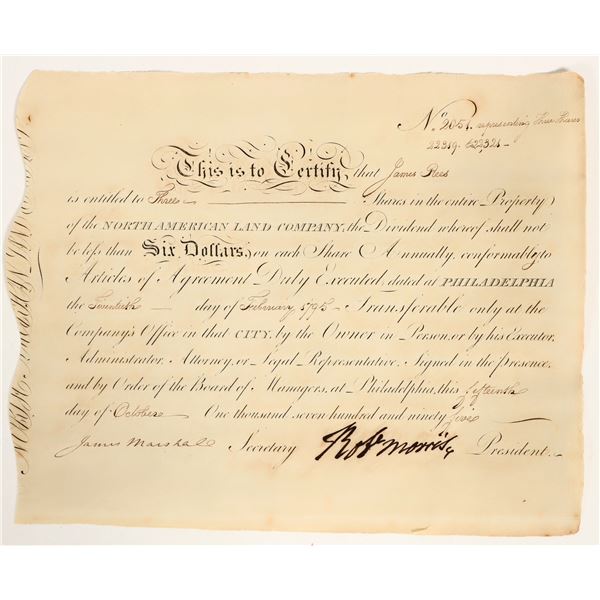 No. 2051. representing Three Shares
22319. to 22321 -
This is to Certify, that James Rees
is entitled to Three Shares in the entire Property
of the NORTH AMERICAN LAND COMPANY, the Dividend whereof shall not
be less than Six Dollars, on each Share Annually, conformably to
Articles of Agreement Duly Executed, dated at PHILADELPHIA
the Twentieth day of February 1795 - Transferable only at the
Company's Office in that CITY, by the Owner in Person, or by his Executor,
Administrator, Attorney, or Legal Representative, Signed in the presence,
and by Order of the Board of Managers, at Philadelphia, this fifteenth
day of October One thousand seven hundred and ninety five
James Marshall Secretary Robt Morris President.